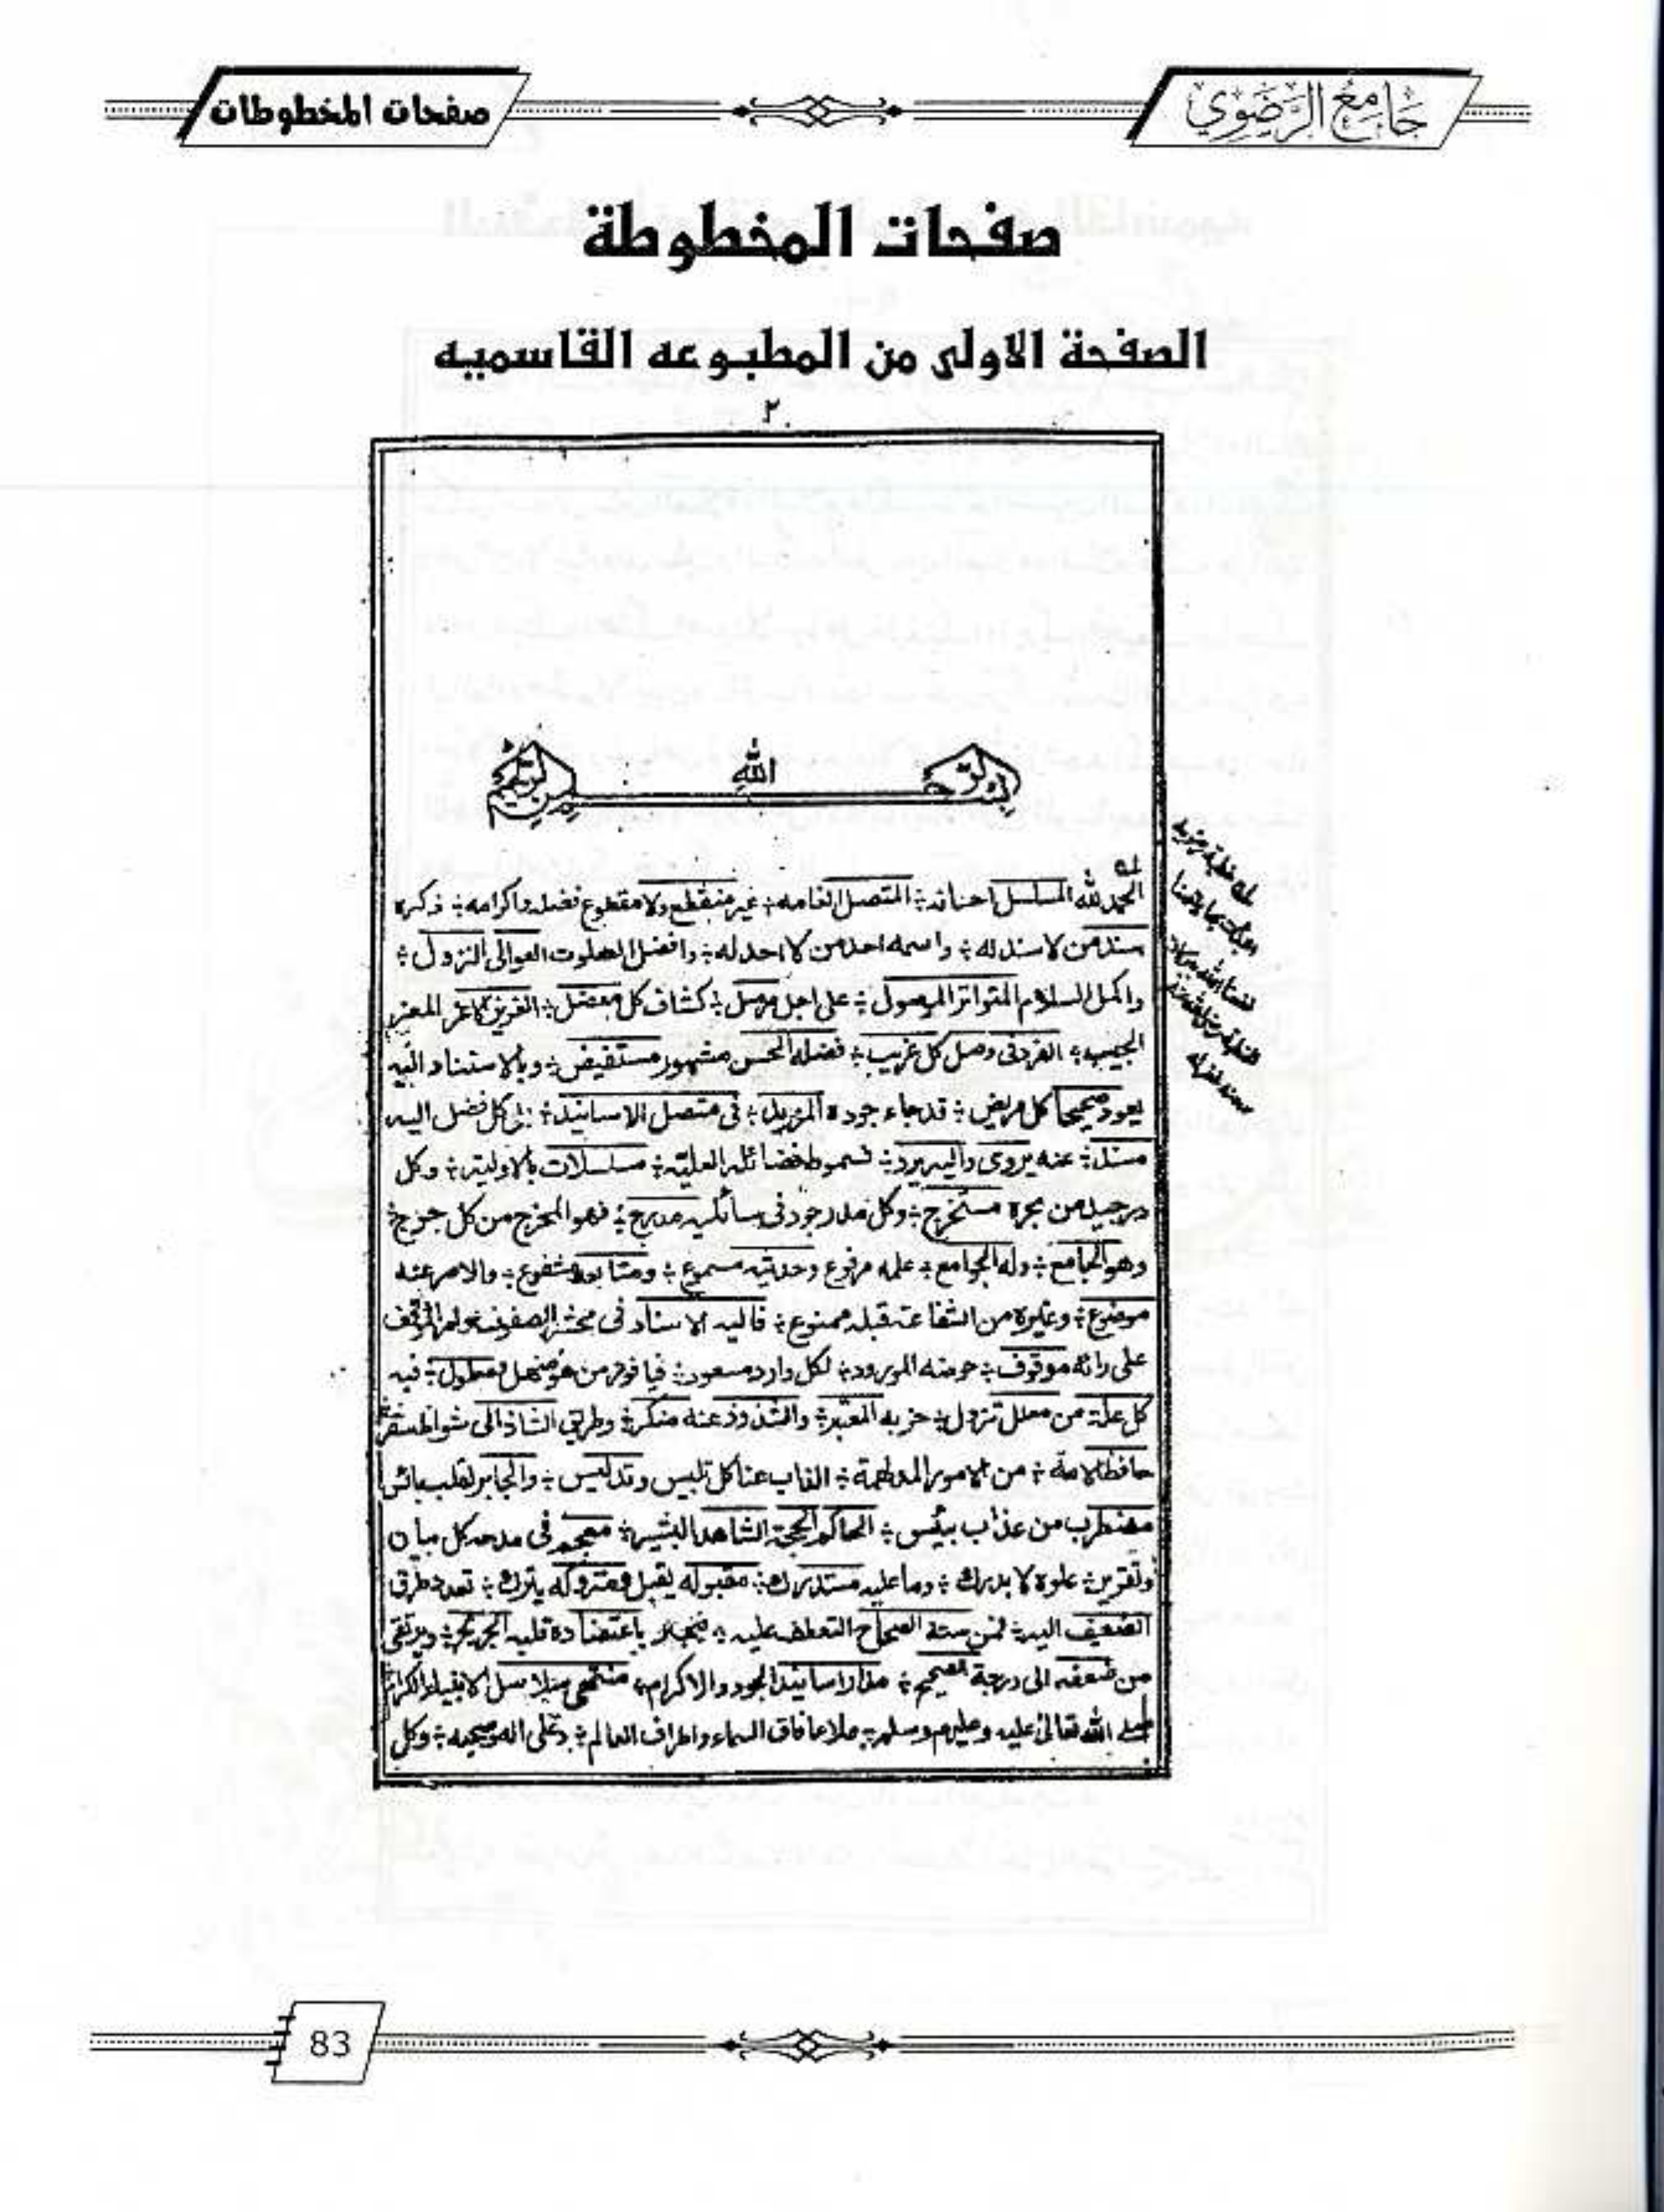 جامع الرضوي
صفحات المخطوطات
صفحات المخطوطة
الصفحة الاولى من المطبوعه القاسميه
٢
بسم الله الرحمن الرحيم
الحمد لله المسلسل احسانه؛ المتصل انعامه؛ غير منقطع ولا مقطوع فضله واكرامه؛ ذكره
سند من لا سند له؛ واسمه احد من لا احد له؛ وافضل الصلوت العوالى النزول؛
واكمل السلام المتواتر الموصول؛ على اجل مرسل؛ كشاف كل معضل؛ العزيز الاعز المعز
الحبيب؛ الفرد فى وصل كل غريب؛ فضله الحسن مشهور مستفيض؛ وبالاستناد اليه
يعود صحيحا كل مريض؛ قد جاء جوده المزيد؛ فى متصل الاسانيد؛ بل كل فضل اليه
مسند؛ عنه يروى واليه يرد؛ فسموط فضائله العليه؛ مسلسلات بالاوليه؛ وكل
در جيد من بحره مستخرج؛ وكل مدر جود فى سائليه مدرج؛ فهو المخرج من كل حرج؛
وهو الجامع؛ وله الجوامع؛ علمه مرفوع وحديثه مسموع؛ ومتابعه مشفوع؛ والاصر عنه
موضوع؛ وغيره من الشفاعة قبله ممنوع؛ فاليه الاسناد فى محشر الصفوف؛ وامر الموقف
على رائه موقوف؛ حوضه المورود؛ لكل وارد مسعود؛ فيا فوز من هو منهل ومعلول؛ فيه
كل علة من معلل تزول؛ حزبه المعتبر؛ والشذوذ عنه منكر؛ وطريق الشاذ الى شواظ سقر؛
حافظ الامة؛ من الامور المدلهمة؛ الذاب عنا كل تلبيس وتدليس؛ والجابر لقلب بائس
مضطرب من عذاب بئيس؛ الحاكم الحجة الشاهد البشير؛ معجم فى مدحه كل بيان
وتقرير؛ علوه لا يدرك؛ وما عليه مستدرك؛ مقبوله يقبل ومتروكه يترك؛ تعدد طرق
الضعيف اليه؛ فمن سنته الصحاح التعطف عليه؛ فيجبر باعتضاده قلبه الجريح؛ ويرتقى
من ضعفه الى درجة الصحيح؛ مدار اسانيد الجود والاكرام؛ منتهى سلاسل الانبياء الكرام
صلى الله تعالى عليه وعليهم وسلم؛ ملأ افاق السماء واطراف العالم؛ وعلى اله وصحبه؛ وكل
83